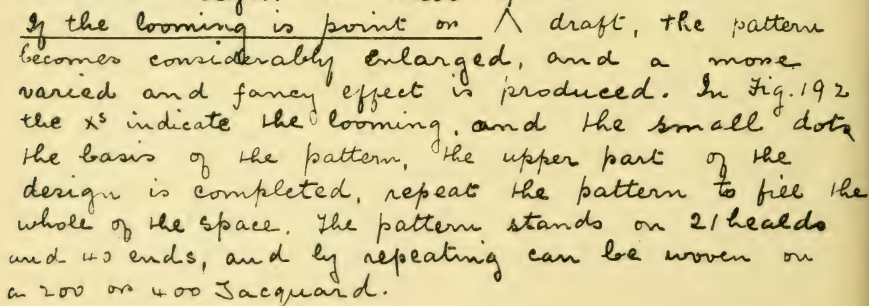 If the looming is point or Λ draft, the pattern
becomes considerably enlarged, and a more
varied and fancy effect is produced. In Fig. 192
the xs indicate the looming, and the small dots
the basis of the pattern, the upper part of the
design is completed, repeat the pattern to fill the
whole of the space. The pattern stands on 21 healds
and 40 ends, and by repeating can be woven on
a 200 or 400 Jacquard.